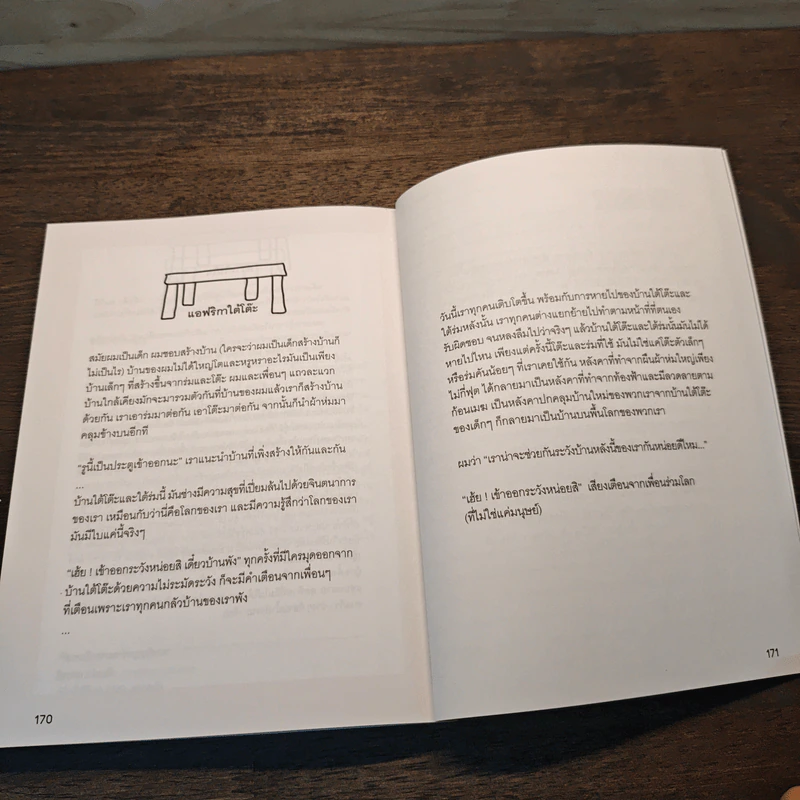 แอฟริกาใต้โต๊ะ
สมัยผมเป็นเด็ก ผมชอบสร้างบ้าน (ใครจะว่าผมเป็นเด็กสร้างบ้านก็
ไม่เป็นไร) บ้านของผมไม่ได้ใหญ่โตและหรูหราอะไรมันเป็นเพียง
บ้านเล็กๆ ที่สร้างขึ้นจากร่มและโต๊ะ ผมและเพื่อนๆ แถวละแวก
บ้านใกล้เคียงมักจะมารวมตัวกันที่บ้านของผมแล้วเราก็สร้างบ้าน
ด้วยกัน เราเอาร่มมาต่อกัน เอาโต๊ะมาต่อกัน จากนั้นก็นำผ้าห่มมา
คลุมข้างบนอีกที
“รูนี้เป็นประตูเข้าออกนะ” เราแนะนำบ้านที่เพิ่งสร้างให้กันและกัน
...
บ้านใต้โต๊ะและใต้ร่มนี้ มันช่างมีความสุขที่เปี่ยมล้นไปด้วยจินตนาการ
ของเรา เหมือนกับว่านี่คือโลกของเรา และมีความรู้สึกว่าโลกของเรา
มันมีใบแค่นี้จริงๆ
“เฮ้ย ! เข้าออกระวังหน่อยสิ เดี๋ยวบ้านพัง” ทุกครั้งที่มีใครมุดออกจาก
บ้านใต้โต๊ะด้วยความไม่ระมัดระวัง ก็จะมีคำเตือนจากเพื่อนๆ
ที่เตือนเพราะเราทุกคนกลัวบ้านของเราพัง
...
170
วันนี้เราทุกคนเติบโตขึ้น พร้อมกับการหายไปของบ้านใต้โต๊ะและ
ใต้ร่มหลังนั้น เราทุกคนต่างแยกย้ายไปทำตามหน้าที่ที่ตนเอง
รับผิดชอบ จนหลงลืมไปว่าจริงๆ แล้วบ้านใต้โต๊ะและใต้ร่มนั้นมันไม่ได้
หายไปไหน เพียงแต่ครั้งนี้โต๊ะและร่มที่ใช้ มันไม่ใช่แค่โต๊ะตัวเล็กๆ
หรือร่มคันน้อยๆ ที่เราเคยใช้กัน หลังคาที่ทำจากผืนผ้าห่มใหญ่เพียง
ไม่กี่ฟุต ได้กลายมาเป็นหลังคาที่ทำจากท้องฟ้าและมีลวดลายตาม
ก้อนเมฆ เป็นหลังคาปกคลุมบ้านใหม่ของพวกเราจากบ้านใต้โต๊ะ
ของเด็กๆ ก็กลายมาเป็นบ้านบนพื้นโลกของพวกเรา
ผมว่า “เราน่าจะช่วยกันระวังบ้านหลังนี้ของเรากันหน่อยดีไหม...”
“เฮ้ย ! เข้าออกระวังหน่อยสิ” เสียงเตือนจากเพื่อนร่วมโลก
(ที่ไม่ใช่แค่มนุษย์)
171